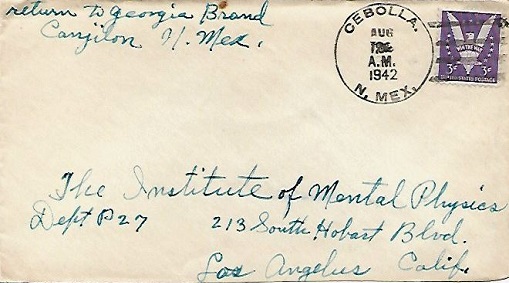 return to Georgia Brand
Canjilon N. Mex.
CEBOLLA.
AUG
A.M.
1942
N. MEX.
WIN THE WAR
3¢ 3¢
UNITED STATES POSTAGE
The Institute of Mental Physics
Dept P27 213 South Hobart Blvd.
Los Angelus Calif.